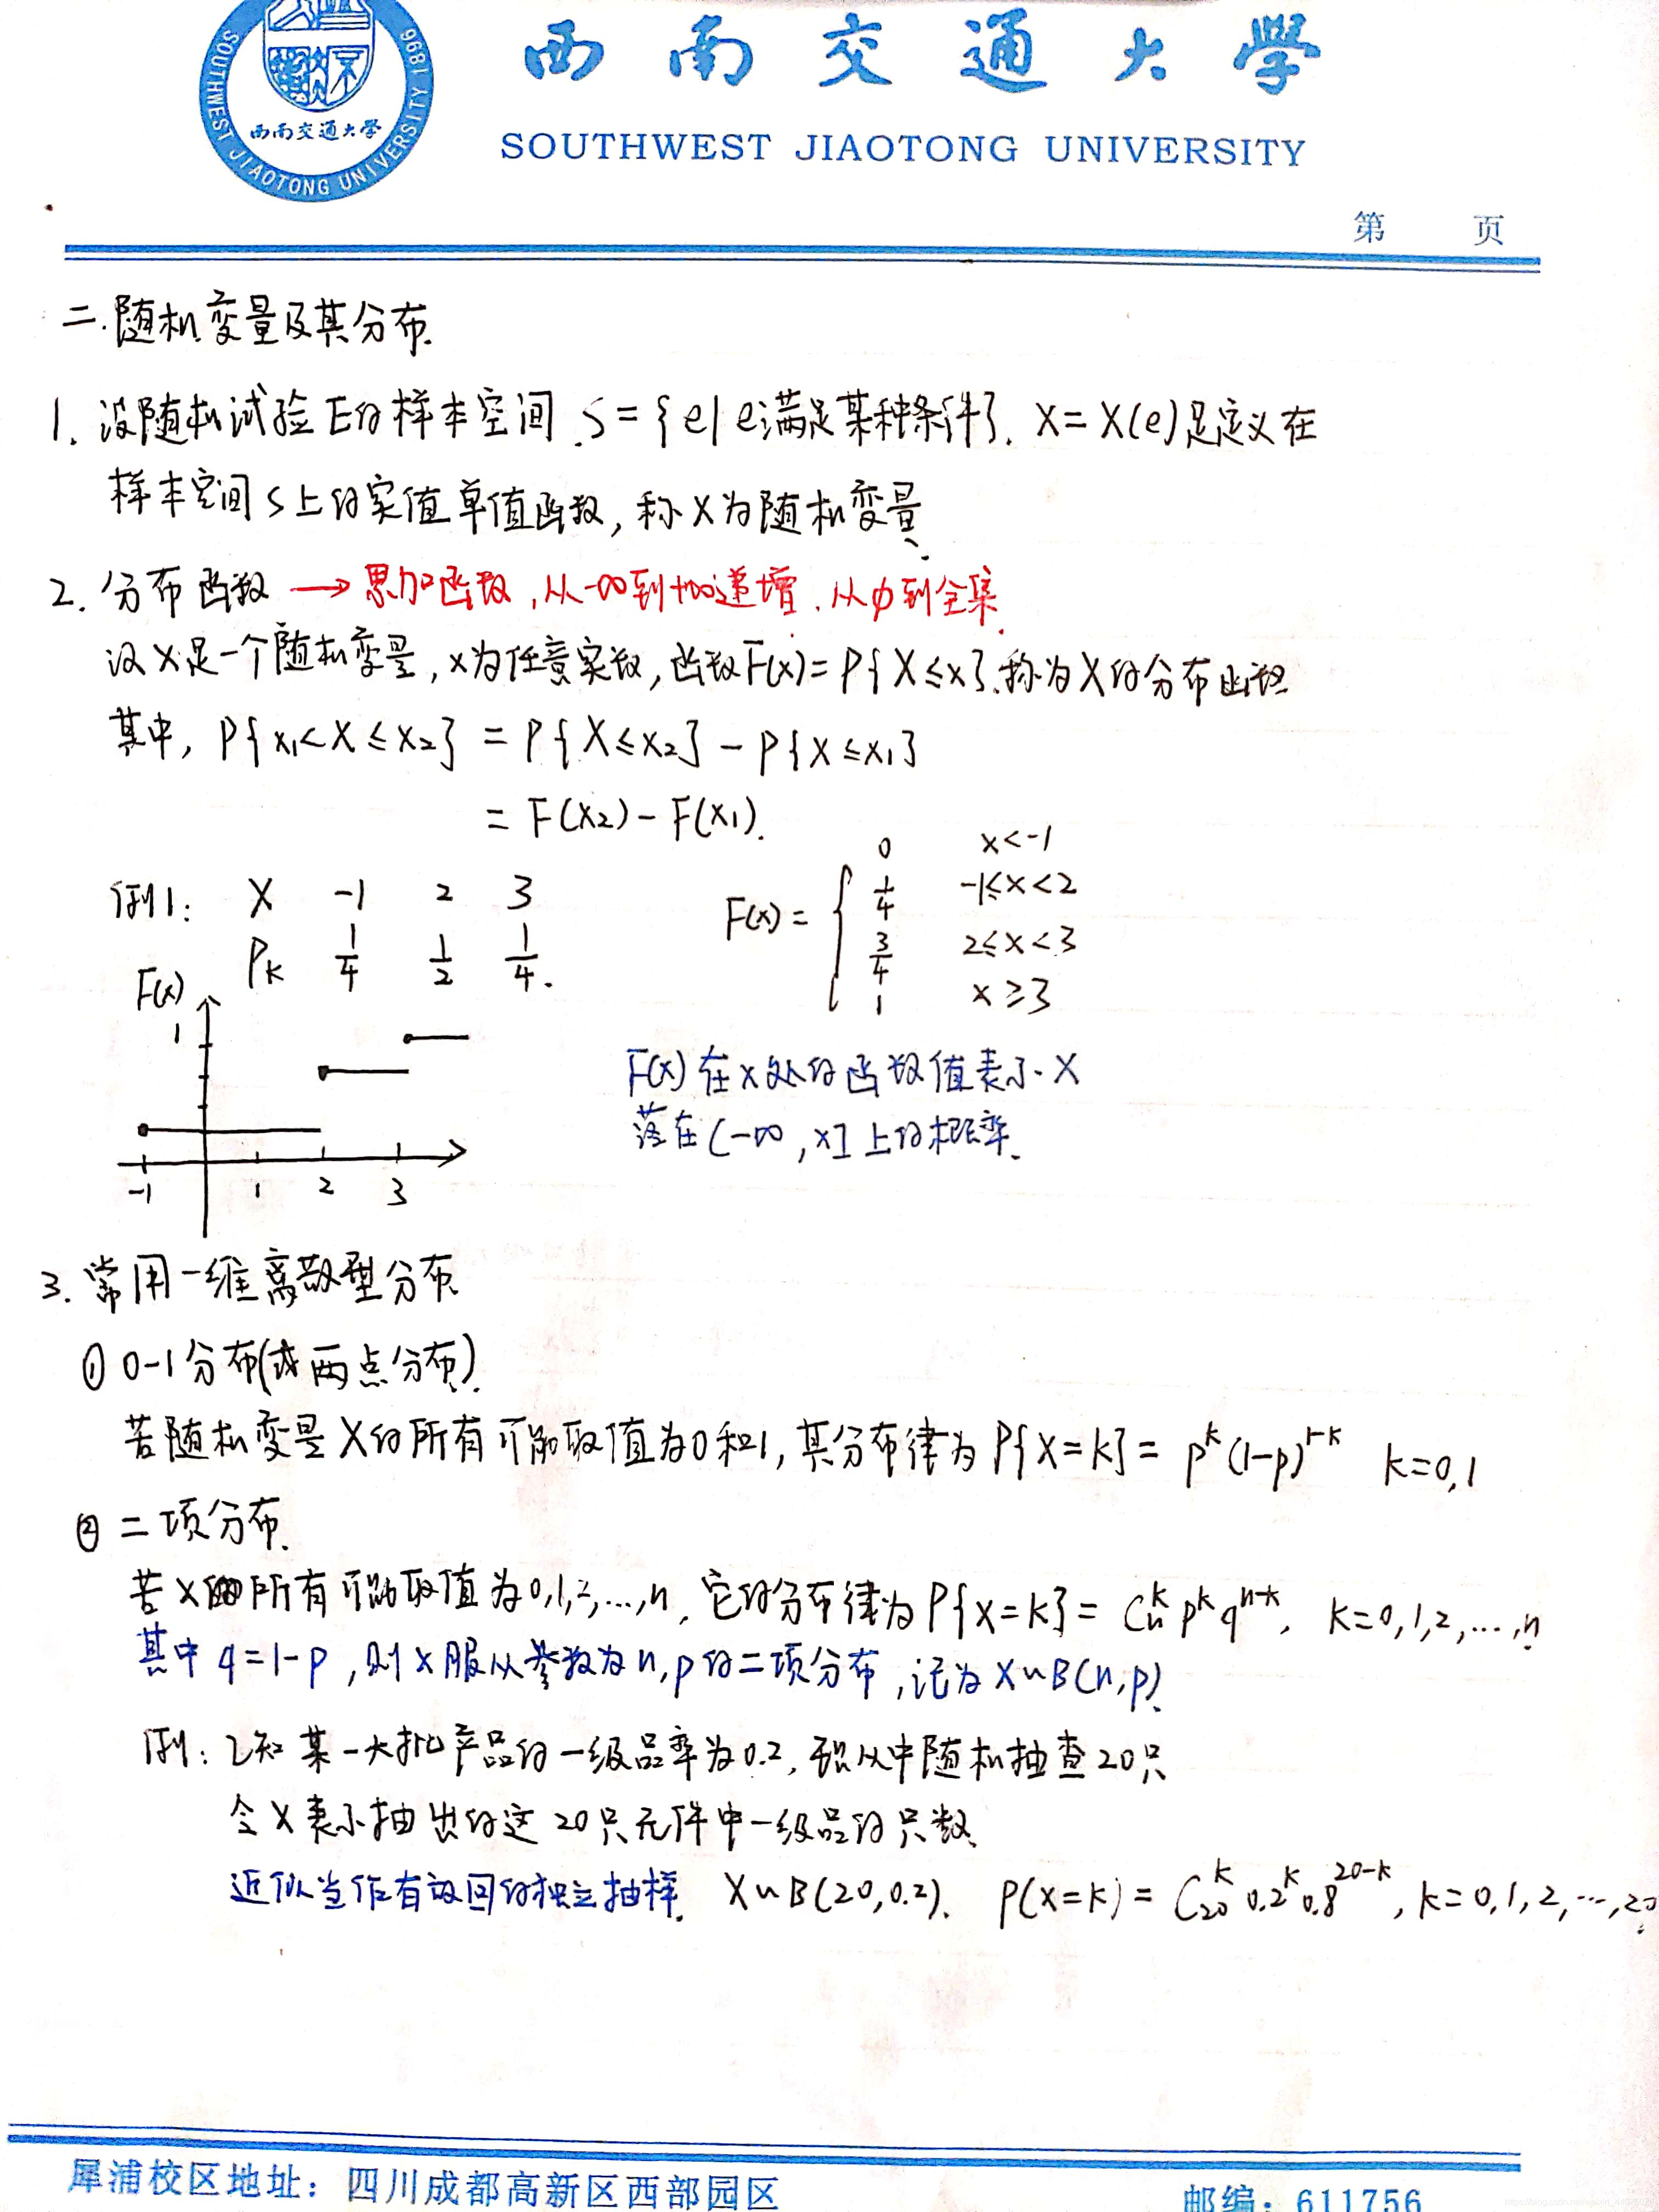 西南交通大學
SOUTHWEST JIAOTONG UNIVERSITY
SOUTHWEST JIAOTONG UNIVERSITY 1896
西南交通大學
第 页
二.随机变量及其分布.
1. 设随机试验E的样本空间.S={e|e满足某种条件}. X=X(e)是定义在
样本空间S上的实值单值函数,称X为随机变量.
2. 分布函数 → 累加函数,从-∞到+∞递增.从φ到全集.
设X是一个随机变量,x为任意实数,函数F(x)=P{X≤x}.称为X的分布函数
其中, P{x₁<X≤x₂} = P{X≤x₂}-P{X≤x₁}
= F(x₂)-F(x₁).
例1: X -1 2 3
Pk 1/4 1/2 1/4.
F(x)= { 0 x<-1
1/4 -1≤x<2
3/4 2≤x<3
1 x≥3
F(x)
1
-1 1 2 3
F(x)在x处的函数值表示X
落在(-∞,x]上的概率.
3. 常用一维离散型分布.
① 0-1分布(或两点分布).
若随机变量X的所有可能取值为0和1,其分布律为P{X=k}= p^k(1-p)^{1-k} k=0,1
② 二项分布.
若X的所有可能取值为0,1,2,...,n,它的分布律为P{X=k}= C_n^k p^k q^{n-k}, k=0,1,2,...,n
其中q=1-p,则X服从参数为n,p的二项分布,记为X~B(n,p).
例:已知某一大批产品的一级品率为0.2,现从中随机抽查20只
令X表示抽出的这20只元件中一级品的只数.
近似当作有放回的独立抽样. X~B(20,0.2). P(X=k)= C_{20}^k 0.2^k 0.8^{20-k}, k=0,1,2,...,20.
犀浦校区地址:四川成都高新区西部园区
邮编:611756